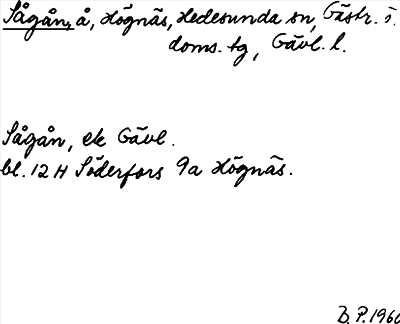 Sågån, å, Högnäs, Hedesunda sn, Gästr. ö.
doms. tg, Gävl. l.
Sågån, ek Gävl.
bl. 12 H Söderfors 9a Högnäs.
B. P. 1960